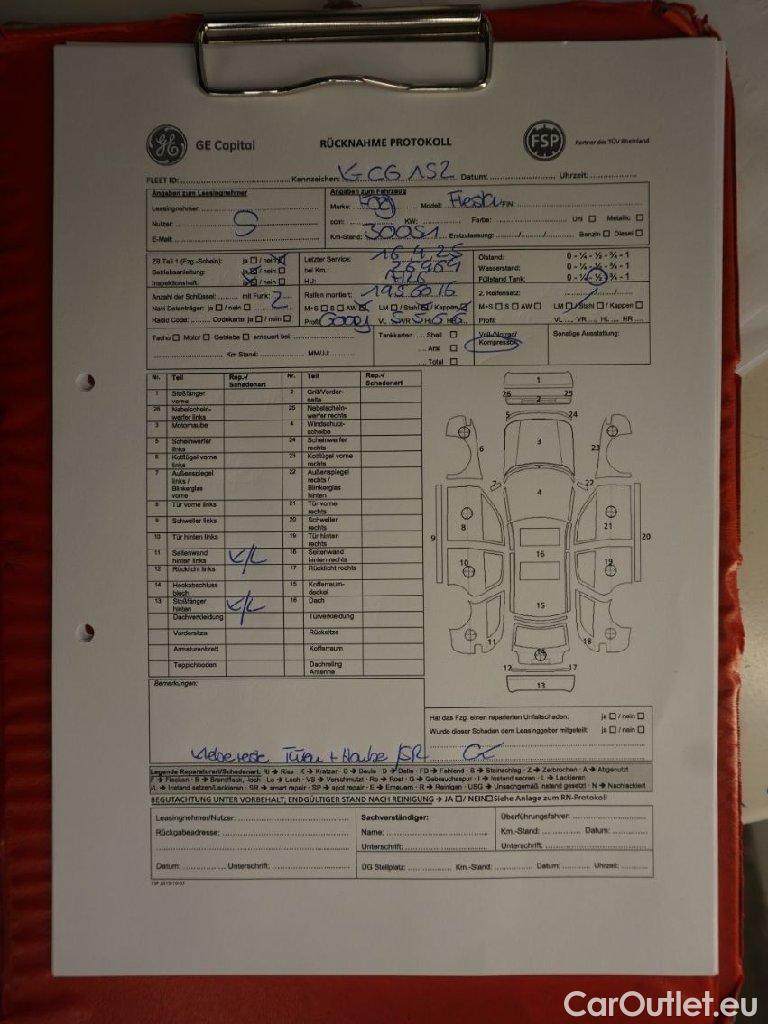 GE Capital
RÜCKNAHME PROTOKOLL
FSP
Partner des TÜV Rheinland
FLEET ID: Kennzeichen: K-CG 152 Datum: Uhrzeit:
Angaben zum Leasingnehmer
Leasingnehmer:
Nutzer:
E-Mail:
Angaben zum Fahrzeug
Marke: Ford Modell: Fiesta FIN:
ccm: KW: Farbe: Uni Metallic
Km-Stand: 30051 Erstzulassung: Benzin Diesel
ZB Teil 1 (Fzg.-Schein): ja / nein
Betriebsanleitung: ja / nein
Inspektionsheft: ja / nein
Letzter Service: 16.4.25
bei Km.: 26969
HU:
Ölstand: 0 - ¼ - ½ - ¾ - 1
Wasserstand: 0 - ¼ - ½ - ¾ - 1
Füllstand Tank: 0 - ¼ - ½ - ¾ - 1
Anzahl der Schlüssel: mit Funk: 2
Navi Datenträger: ja / nein
Radio Code: Codekarte ja / nein
Reifen montiert: 195 60 15
M+S S AW LM / Stahl / Kappen
Profil VL 5 VR 5 HL 6 HR 6
2. Reifensatz:
M+S S AW LM / Stahl / Kappen
Profil VL VR HL HR
Tacho Motor Getriebe erneuert bei
Km Stand: MM/JJ:
Tankkarten: Shell
Aral
Total
Kompressor
Sonstige Ausstattung:
Nr. Teil Rep.-/ Schadenart Nr. Teil Rep.-/ Schadenart
1 Stoßfänger vorne 2 Grill/Vorderseite
26 Nebelscheinwerfer links 25 Nebelscheinwerfer rechts
3 Motorhaube 4 Windschutzscheibe
5 Scheinwerfer links 24 Scheinwerfer rechts
6 Kotflügel vorne links 23 Kotflügel vorne rechts
7 Außenspiegel links / Blinkerglas vorne 22 Außenspiegel rechts / Blinkerglas hinten
8 Tür vorne links 21 Tür vorne rechts
9 Schweller links 20 Schweller rechts
10 Tür hinten links 19 Tür hinten rechts
11 Seitenwand hinten links K/L 18 Seitenwand hinten rechts
12 Rücklicht links 17 Rücklicht rechts
14 Heckabschlussblech 15 Kofferraumdeckel
13 Stoßfänger hinten K/L 16 Dach
Dachverkleidung Türverkleidung
Vordersitze Rücksitze
Armaturenbrett Kofferraum
Teppichboden Dachreling Antenne
Bemerkungen:
Klebereste Türen + Haube / SR
Hat das Fzg. einen reparierten Unfallschaden: ja / nein
Wurde dieser Schaden dem Leasinggeber mitgeteilt: ja / nein
Legende Reparaturart/Schadenart: RI → Riss - K → Kratzer - D → Delle - FD → Fehlend - S → Steinschlag - Z → Zerbrochen - A → Abgenutzt
F → Flecken - B → Brandfleck, -loch - Lo → Loch - VS → Verschmutzt - Ro → Rost - G → Gebrauchsspur - I → Instand setzen - L → Lackieren
I/L → Instand setzen/Lackieren - SR → smart repair - SP → spot repair - E → Erneuern - R → Reinigen - USG → Unsachgemäß instand gesetzt - N → Nachlackiert
BEGUTACHTUNG UNTER VORBEHALT, ENDGÜLTIGER STAND NACH REINIGUNG → JA / NEIN Siehe Anlage zum RN-Protokoll
Leasingnehmer/Nutzer:
Rückgabeadresse:
Datum: Unterschrift:
Sachverständiger:
Name:
Unterschrift:
Überführungsfahrer:
Km.-Stand: Datum:
Unterschrift:
ÜG Stellplatz: Km.-Stand: Datum: Uhrzeit:
CarOutlet.eu